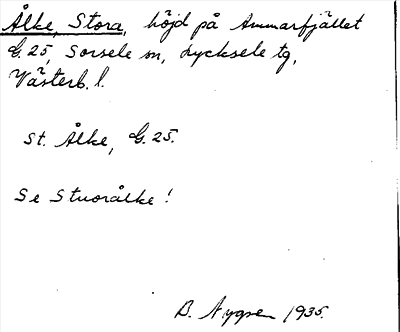 Ålke, Stora, höjd på Ammarfjället
G. 25, Sorsele sn, Lycksele tg,
Västerb. l.
St. Ålke, G. 25.
Se Stuorålke!
B. Nygren 1935.